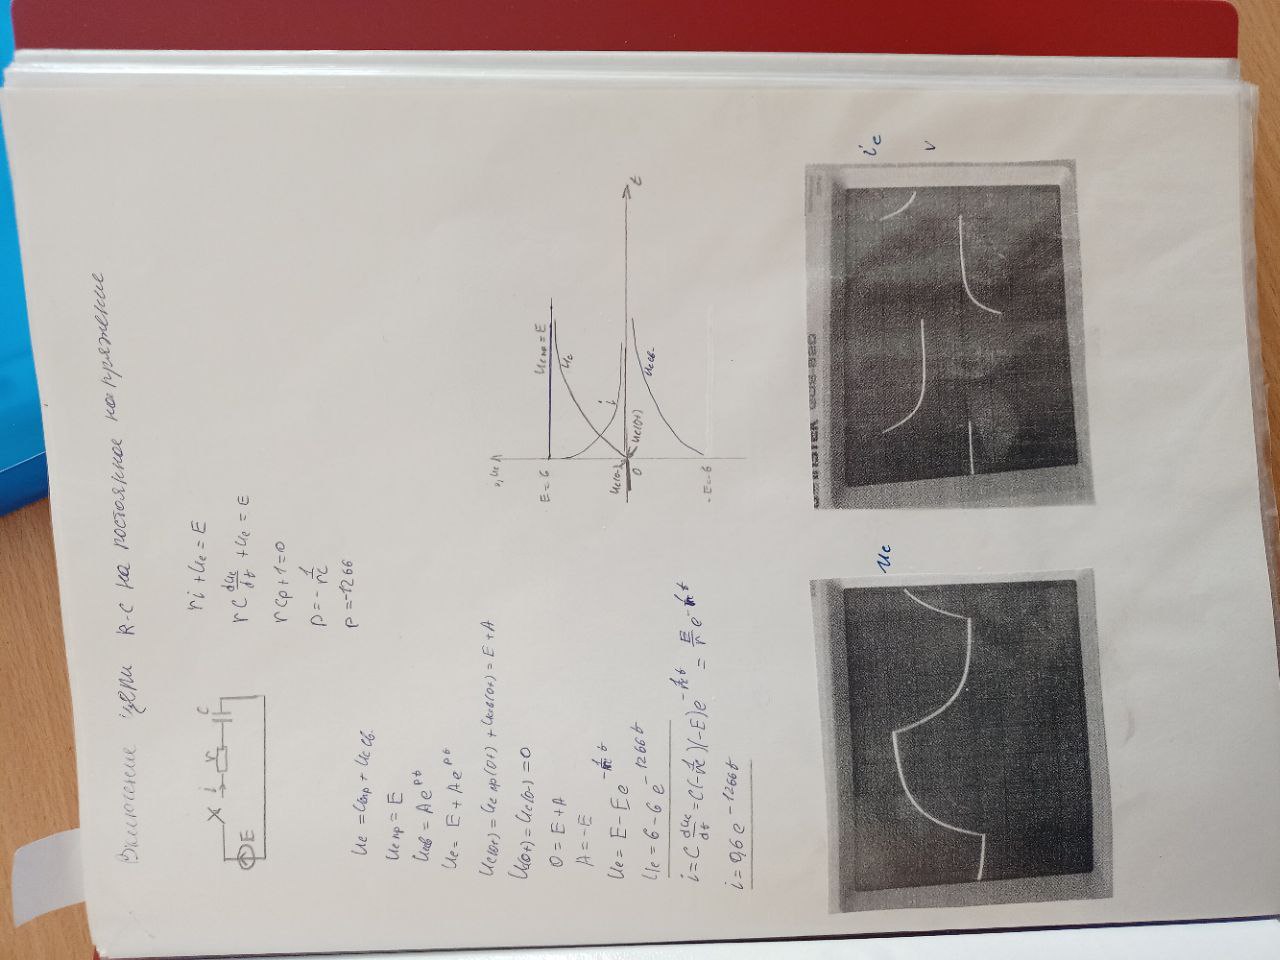 Включение цепи R-C на постоянное напряжение
i r C
E
ri + uc = E
rC duc/dt + uc = E
rCp + 1 = 0
p = - 1/rC
p = -1266
uc = uc пр + uc св.
uc пр = E
uc св = Ae^pt
uc = E + Ae^pt
uc(0+) = uc пр(0+) + uc св(0+) = E + A
uc(0+) = uc(0-) = 0
0 = E + A
A = -E
uc = E - Ee^-1/rC t
uc = 6 - 6 e^-1266t
i = C duc/dt = C(-1/rC)(-E)e^-1/rC t = E/r e^-1/rC t
i = 0,6 e^-1266t
i, uc
E = 6 uc пр = E
uc
i
uc(0-)
0 uc(0+) t
uc св.
-E = -6
uc
GOS-620
ic